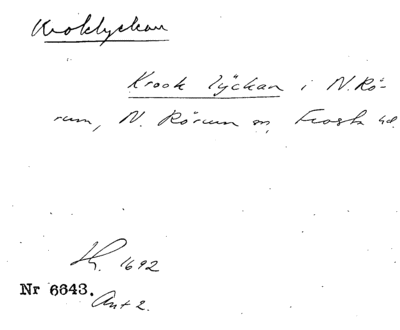 Kroklyckan
Krook lÿckan i N. Rö-
rum, N. Rörum sn, Frosta hd.
Lh. 1692
Nr 6643.
Ant 2.